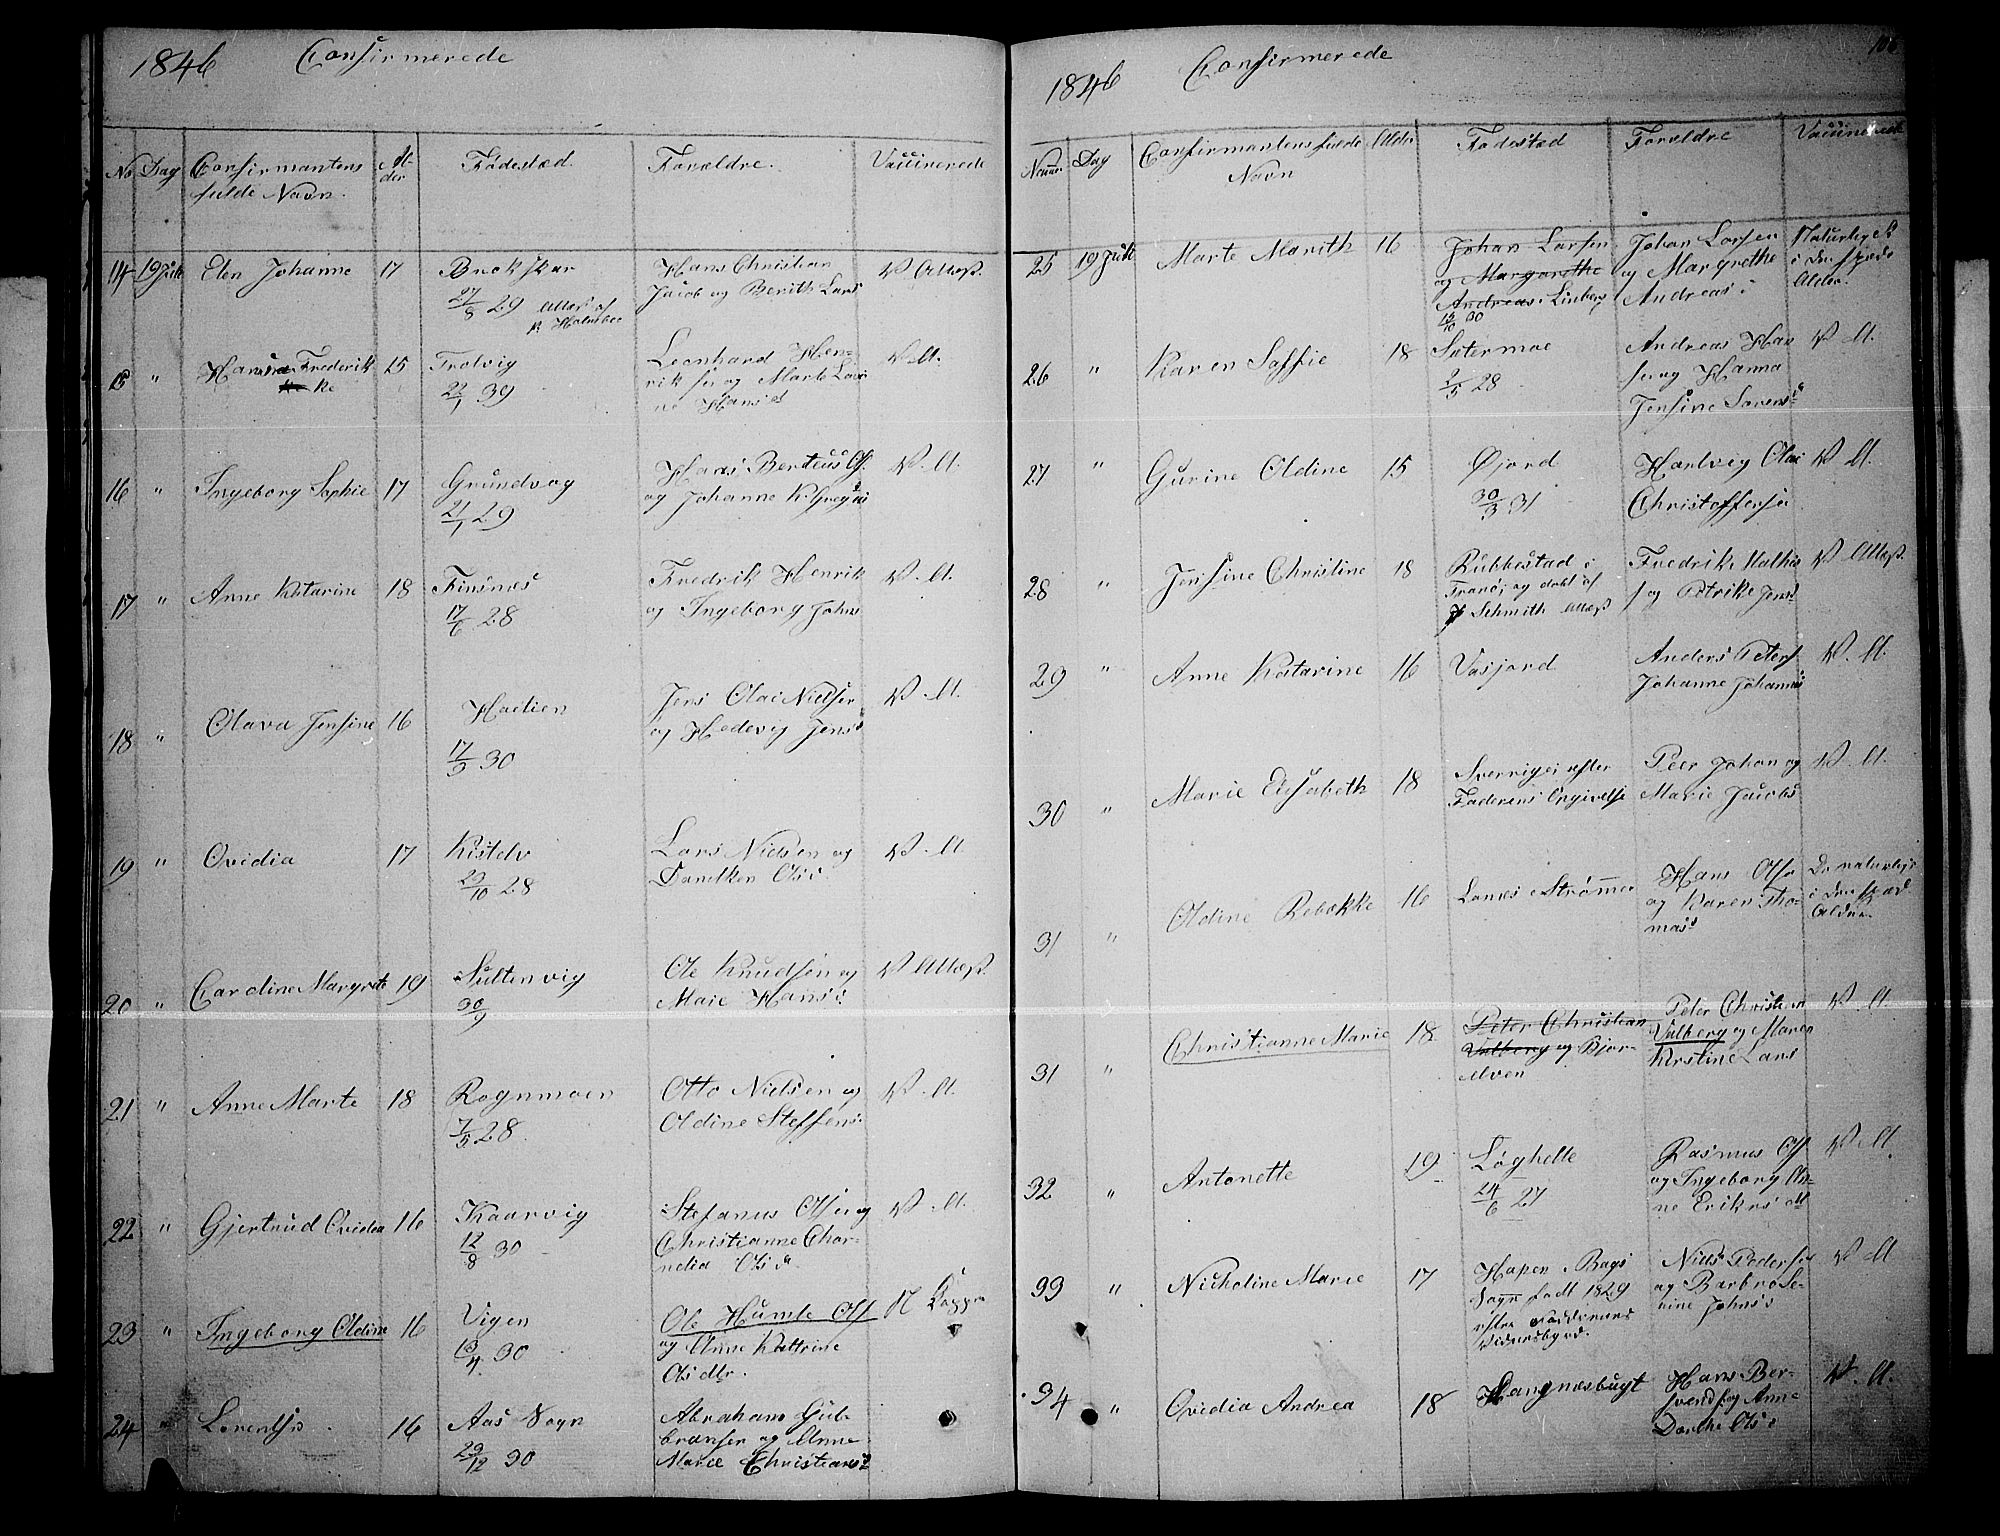 1846 Confirmerede
No Dag Confirmantens fulde Navn. Alder Fødested. Forældre. Vaccinerede
14 19 Juli Elen Johanne 17
27/8 29 Attest af
p. Holmboe
Hans Christian
Jacob og Berith Lars
V Attest.
15 " Frederik
ke
15 Trolvig
22/1 39
Leonhard Hen-
rik sen og Marte Lovi
ne Hans d
V. A.
16 " Ingeborg Sophie 17 Grundvog
21/1 29
Hans Berteus Ols.
og Johanne K. Greg
V. A.
17 " Anne Katarine 18 Finsnes
17/6 28
Fredrik Henrik
og Ingeborg Johns
V. A.
18 " Olava Jensine 16
17/3 30
Jens Olai Nielsen
og Hedevig Jens
V. A.
19 " Ovidia 17 Kistelv
29/10 28
Lars Nielsen og
Danelken Ols
V. A
20 " Caroline Margrete 19 Sultenvig
30/9
Ole Knudsen og
Marie Hans
V Attest.
21 " Anne Marte 18 Rognmoen
7/5 28.
Otto Nielsen og
Oldine Steffens
V. A.
22 " Gjertrud Ovidia 16 Kaarvig
12/8 30
Stefanus Olsen og
Christianne Chor-
nelia Ols d
V. A.
23 " Ingeborg Oldine 16 Vigen
13/4 30
Ole Humle Ols
og Anne Kattrine
Ols dtr.
N Kopper
24 " Lorentse 16 Aas Sogn
29/12 30
Abraham Gul-
bransen og Anne
Marie Christians
1846 Confirmerede 106
Dag Confirmantens fulde Alder Fødested Forældre Vaccinerede
Navn
25 19 Juli Marte Marith 16 Johan Larsen
og Margarethe
Andreas Linberg
12/10 30
Johan Larsen
og Margrethe
Andreas
Naturlige K
i den spæde
Alder.
26 " Karen Soffie 18 Sætermoe
2/5 28
Andreas Han
sen og Hanna
Jensine Sørens
V A.
27 " Gurine Oldine 15 Øjord
30/3 31
Hartvig Olai
Christoffersen
V A.
28 " Jensine Christine 18 Rubbestad i
Tranøj og døbt af
p Schmith Attest
Fredrik Mathis
s og Petrike Jens
V Attest.
29 " Anne Katarine 16 Vasjord
Anders Peters
Johanne Johannes
V. A.
30 " Marie Elisabeth 18 Sverrige efter
Faderens Opgivelse
Peer Johan og
Marie Jacobs
V. A.
31 " Oldine Rebække 16 Lanes i Strømmen
Hans Olsen
og Karen Tho-
mas
De naturlige
i den spæde
Alder.
31 " Christianne Marie 18 Peter Christian
Valberg og Bjor-
elven
Peter Christian
Valberg og Maren
Kirstine Lars
V. A.
32 " Antonette 19 Løghelle
24/6 27
Rasmus Ols
og Ingeborg An-
ne Eriks dtr
V A.
33 " Nicholine Marie 17
Sogn født 1829
efter Fadderens
Vidnesbyrd.
Niels Pedersen
og Barbro Se-
rine Johns
V A
34 " Ovidia Andrea 18 Hangnæsbugt
Hans Ber-
svends og Anne
Dorthe Ols
V. A.